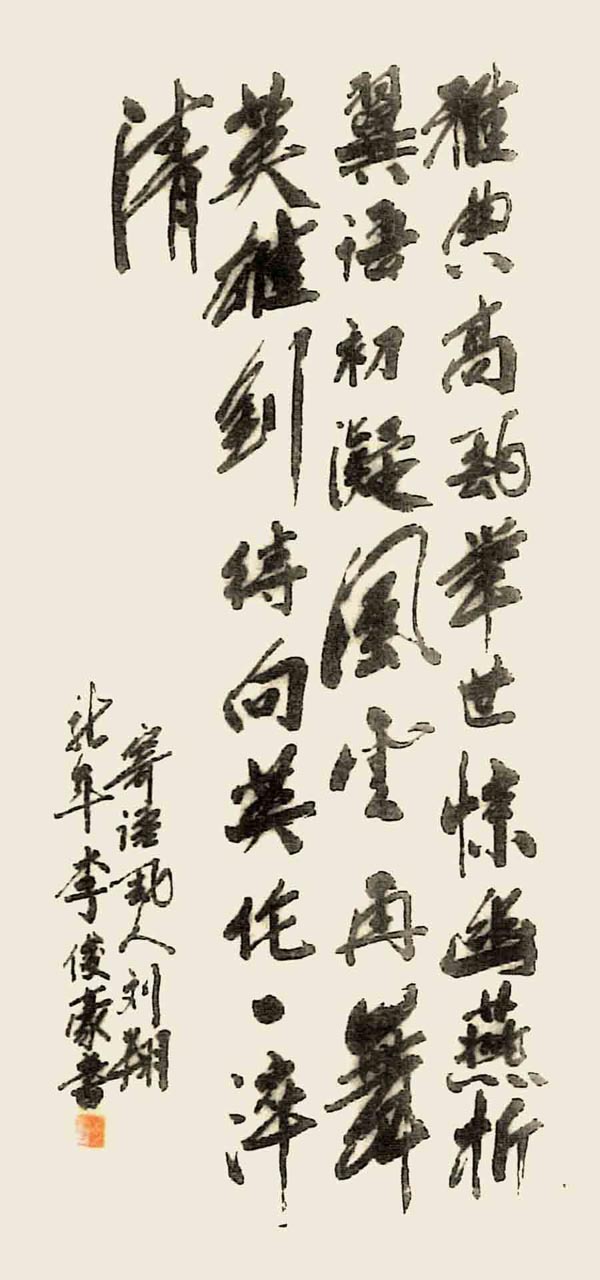 雅典高勋举世惊幽燕折
翼语初凝風云再舞
英雄剑待向英伦一淬
清
寄语飞人刘翔
龙年李俊豪書